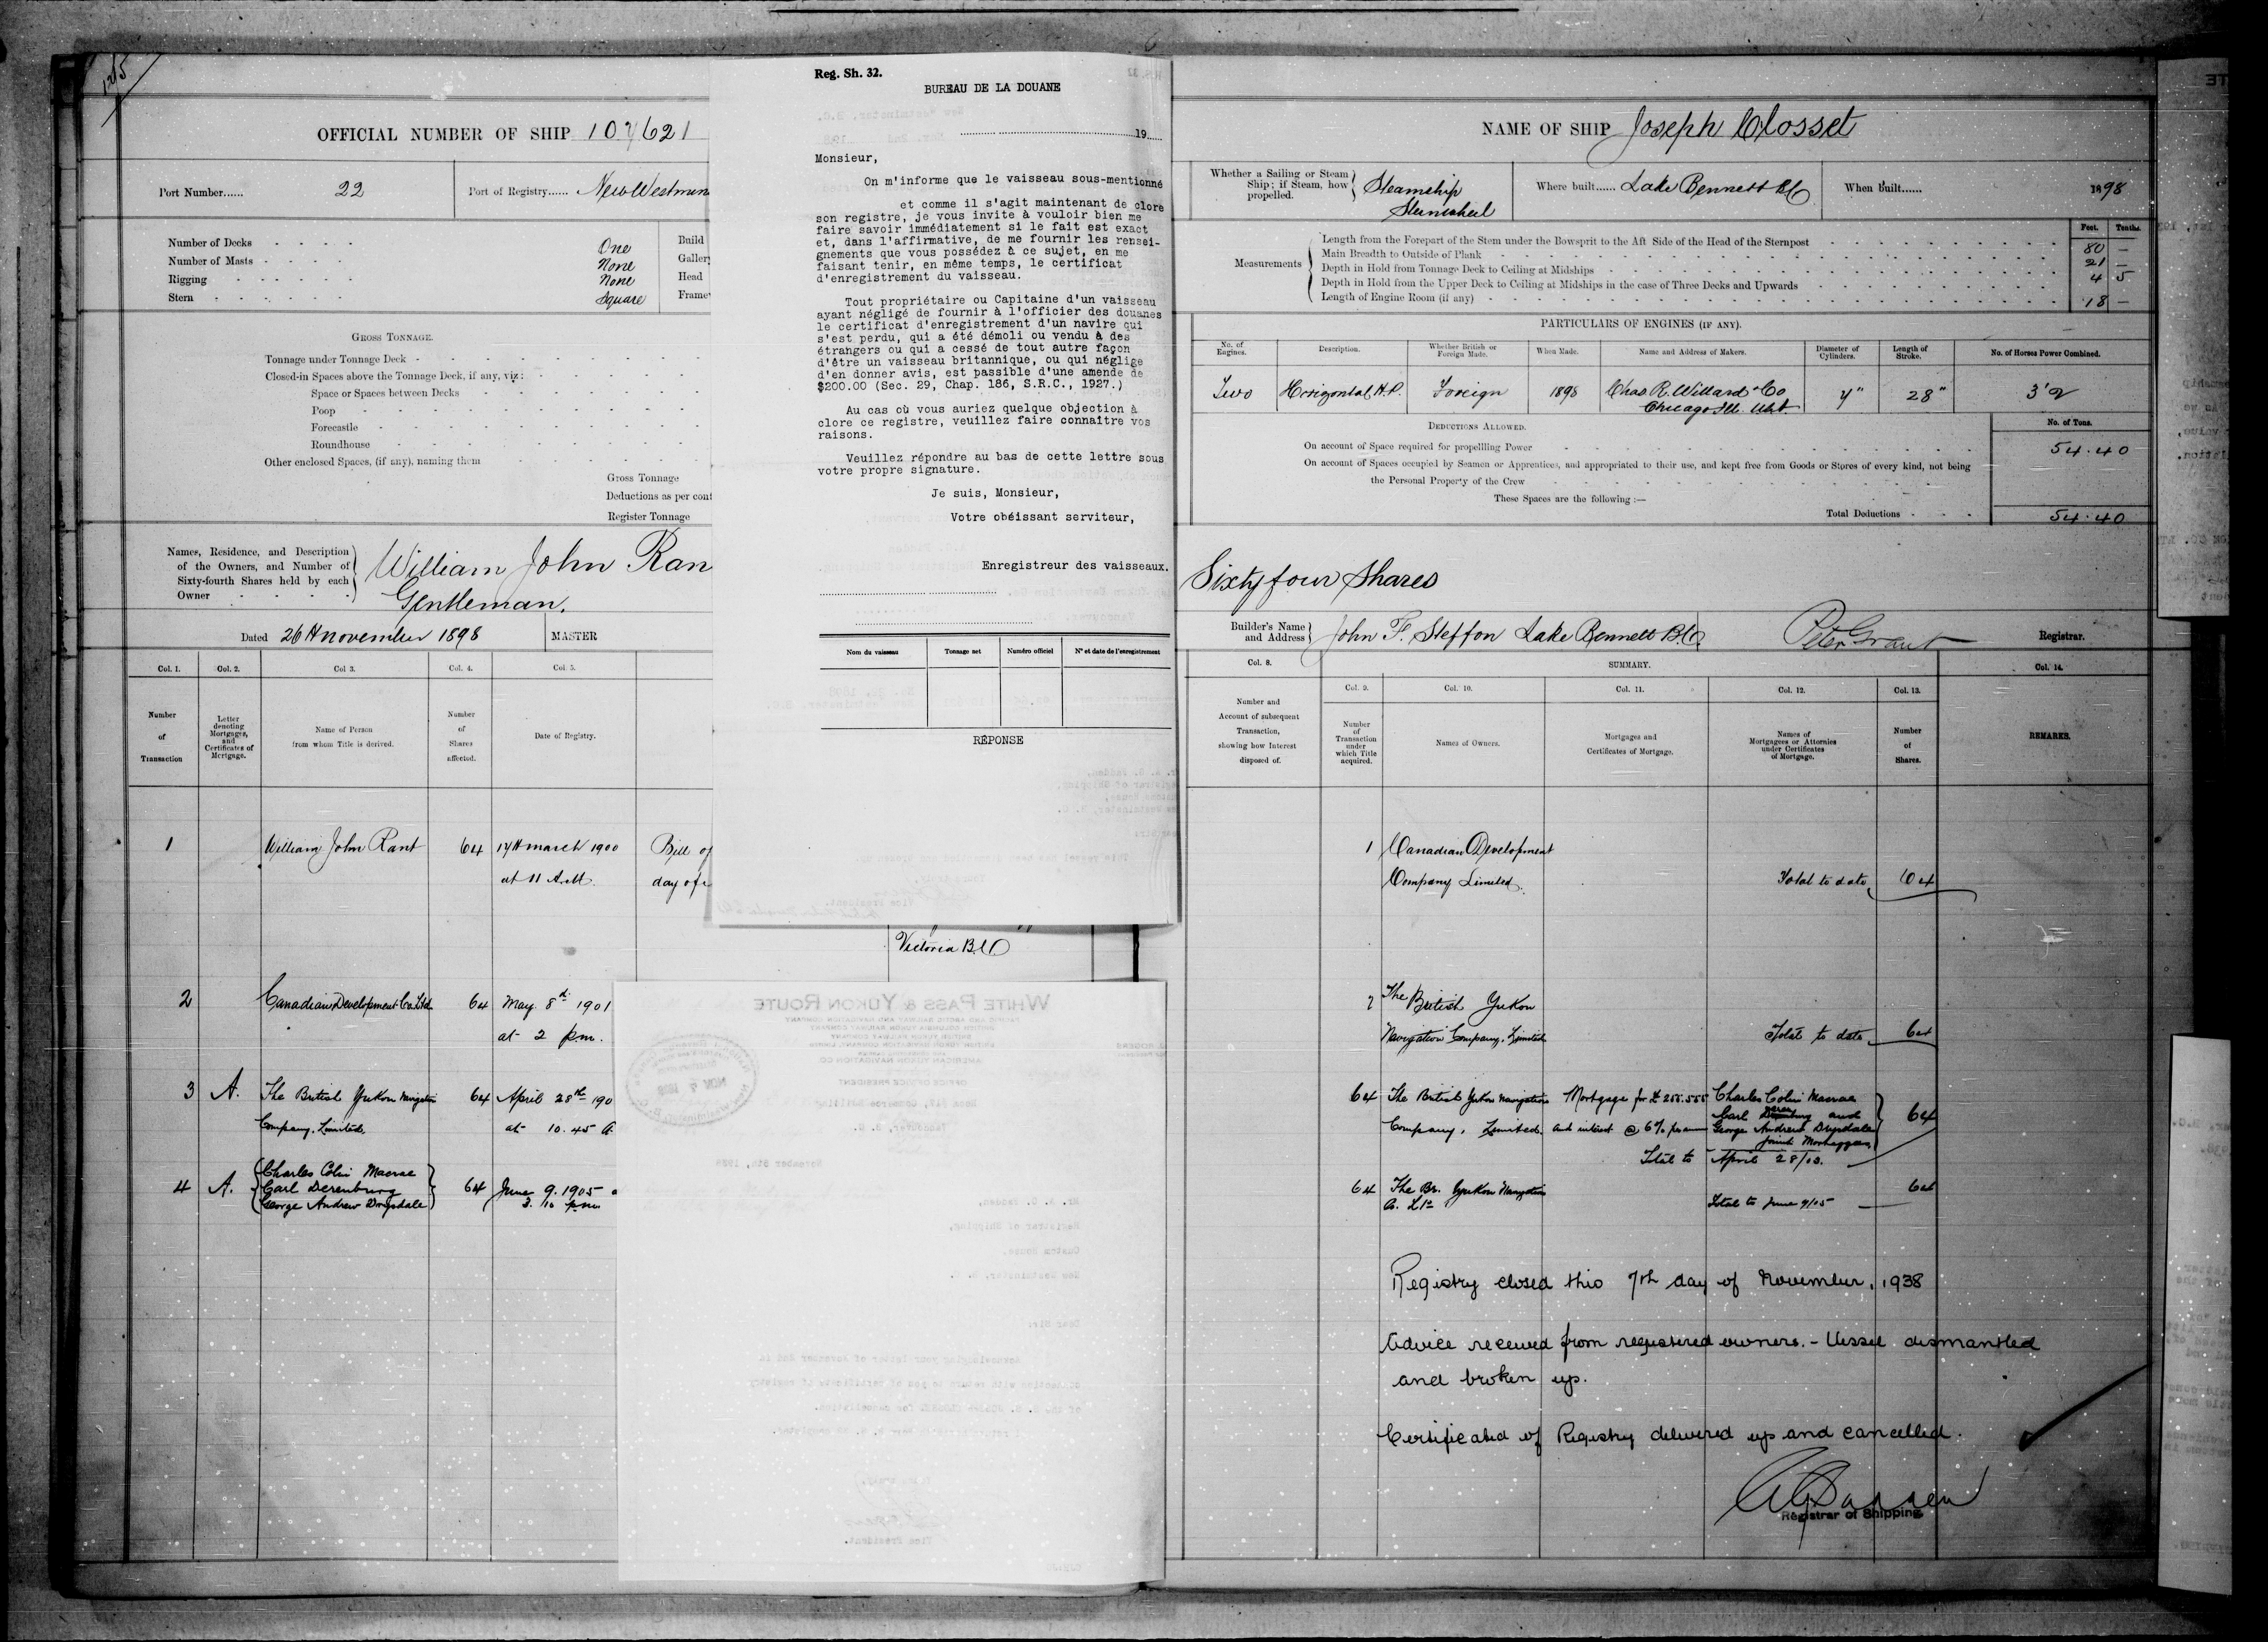 1215
OFFICIAL NUMBER OF SHIP 107621
Port Number...... 22
Port of Registry...... New Westmin
Number of Decks One
Number of Masts None
Rigging None
Stern Square
Build
Galler
Head
Frame
GROSS TONNAGE.
Tonnage under Tonnage Deck
Closed-in Spaces above the Tonnage Deck, if any, viz:
Space or Spaces between Decks
Poop
Forecastle
Roundhouse
Other enclosed Spaces, (if any), naming them
Gross Tonnage
Deductions as per cont
Register Tonnage
Names, Residence, and Description
of the Owners, and Number of
Sixty-fourth Shares held by each
Owner
William John Ran
Gentleman.
Dated 26th november 1898 MASTER
Col. 1. Col. 2. Col 3. Col. 4. Col. 5.
Number
of
Transaction
Letter
denoting
Mortgages,
and
Certificates of
Mortgage.
Name of Person
from whom Title is derived.
Number
of
Shares
affected.
Date of Registry.
1 William John Rant 64 17th march 1900 Bill of
at 11 A.M. day of
Victoria B.C.
2 Canadian Development Co. Ltd. 64 May 8th 1901
at 2 p.m.
3 A. The British Yukon Navigation 64 April 28th 190
Company, Limited. at 10.45 a.
4 A. Charles Colin Macrae
Carl Derenburg 64 June 9. 1905
George Andrew Drysdale 3.10 p.m.
Reg. Sh. 32.
BUREAU DE LA DOUANE
19
Monsieur,
On m'informe que le vaisseau sous-mentionné
et comme il s'agit maintenant de clore
son registre, je vous invite à vouloir bien me
faire savoir immédiatement si le fait est exact
et, dans l'affirmative, de me fournir les rensei-
gnements que vous possédez à ce sujet, en me
faisant tenir, en même temps, le certificat
d'enregistrement du vaisseau.
Tout propriétaire ou Capitaine d'un vaisseau
ayant négligé de fournir à l'officier des douanes
le certificat d'enregistrement d'un navire qui
s'est perdu, qui a été démoli ou vendu à des
étrangers ou qui a cessé de tout autre façon
d'être un vaisseau britannique, ou qui néglige
d'en donner avis, est passible d'une amende de
$200.00 (Sec. 29, Chap. 186, S.R.C., 1927.)
Au cas où vous auriez quelque objection à
clore ce registre, veuillez faire connaître vos
raisons.
Veuillez répondre au bas de cette lettre sous
votre propre signature.
Je suis, Monsieur,
Votre obéissant serviteur,
Enregistreur des vaisseaux.
Nom du vaisseau Tonnage net Numéro officiel N° et date de l'enregistrement
RÉPONSE
WHITE PASS & YUKON ROUTE
NAME OF SHIP Joseph Closset
Whether a Sailing or Steam
Ship; if Steam, how
propelled.
Steamship
Sternwheel
Where built...... Lake Bennett BC
When built...... 1898
Feet. Tenths.
Measurements
Length from the Forepart of the Stem under the Bowsprit to the Aft Side of the Head of the Sternpost 80 —
Main Breadth to Outside of Plank 21 —
Depth in Hold from Tonnage Deck to Ceiling at Midships 4 5
Depth in Hold from the Upper Deck to Ceiling at Midships in the case of Three Decks and Upwards
Length of Engine Room (if any) 18 —
PARTICULARS OF ENGINES (IF ANY).
No. of
Engines.
Description.
Whether British or
Foreign Made.
When Made.
Name and Address of Makers.
Diameter of
Cylinders.
Length of
Stroke.
No. of Horses Power Combined.
Two Horizontal H.P. Foreign 1898 Chas R. Willard & Co 28" 3'2
Chicago Ill. USA
DEDUCTIONS ALLOWED.
No. of Tons.
On account of Space required for propelling Power 54.40
On account of Spaces occupied by Seamen or Apprentices, and appropriated to their use, and kept free from Goods or Stores of every kind, not being
the Personal Property of the Crew
These Spaces are the following:—
Total Deductions 54.40
Sixty four Shares
Builder's Name
and Address
John F. Steffon Lake Bennett B.C. Peter Grant Registrar.
Col. 8. SUMMARY. Col. 14.
Col. 9. Col. 10. Col. 11. Col. 12. Col. 13.
Number and
Account of subsequent
Transaction,
showing how Interest
disposed of.
Number
of
Transaction
under
which Title
acquired.
Names of Owners.
Mortgages and
Certificates of Mortgage.
Names of
Mortgagees or Attornies
under Certificates
of Mortgage.
Number
of
Shares.
REMARKS.
1 Canadian Development
Company Limited. Total to date 64
2 The British Yukon
Navigation Company, Limited Total to date 64
64 The British Yukon Navigation Mortgage for Charles Colin Macrae
Company, Limited. and interest @ 6% per ann Carl Derenburg and 64
George Andrew Drysdale
Joint Mortgagees
Total to April 28/03.
64 The Br. Yukon Navigation 64
Co. Ltd Total to June 9/05
Registry closed this 7th day of November, 1938
Advice received from registered owners. - Vessel dismantled
and broken up.
Certificated of Registry delivered up and cancelled.
Registrar of Shipping